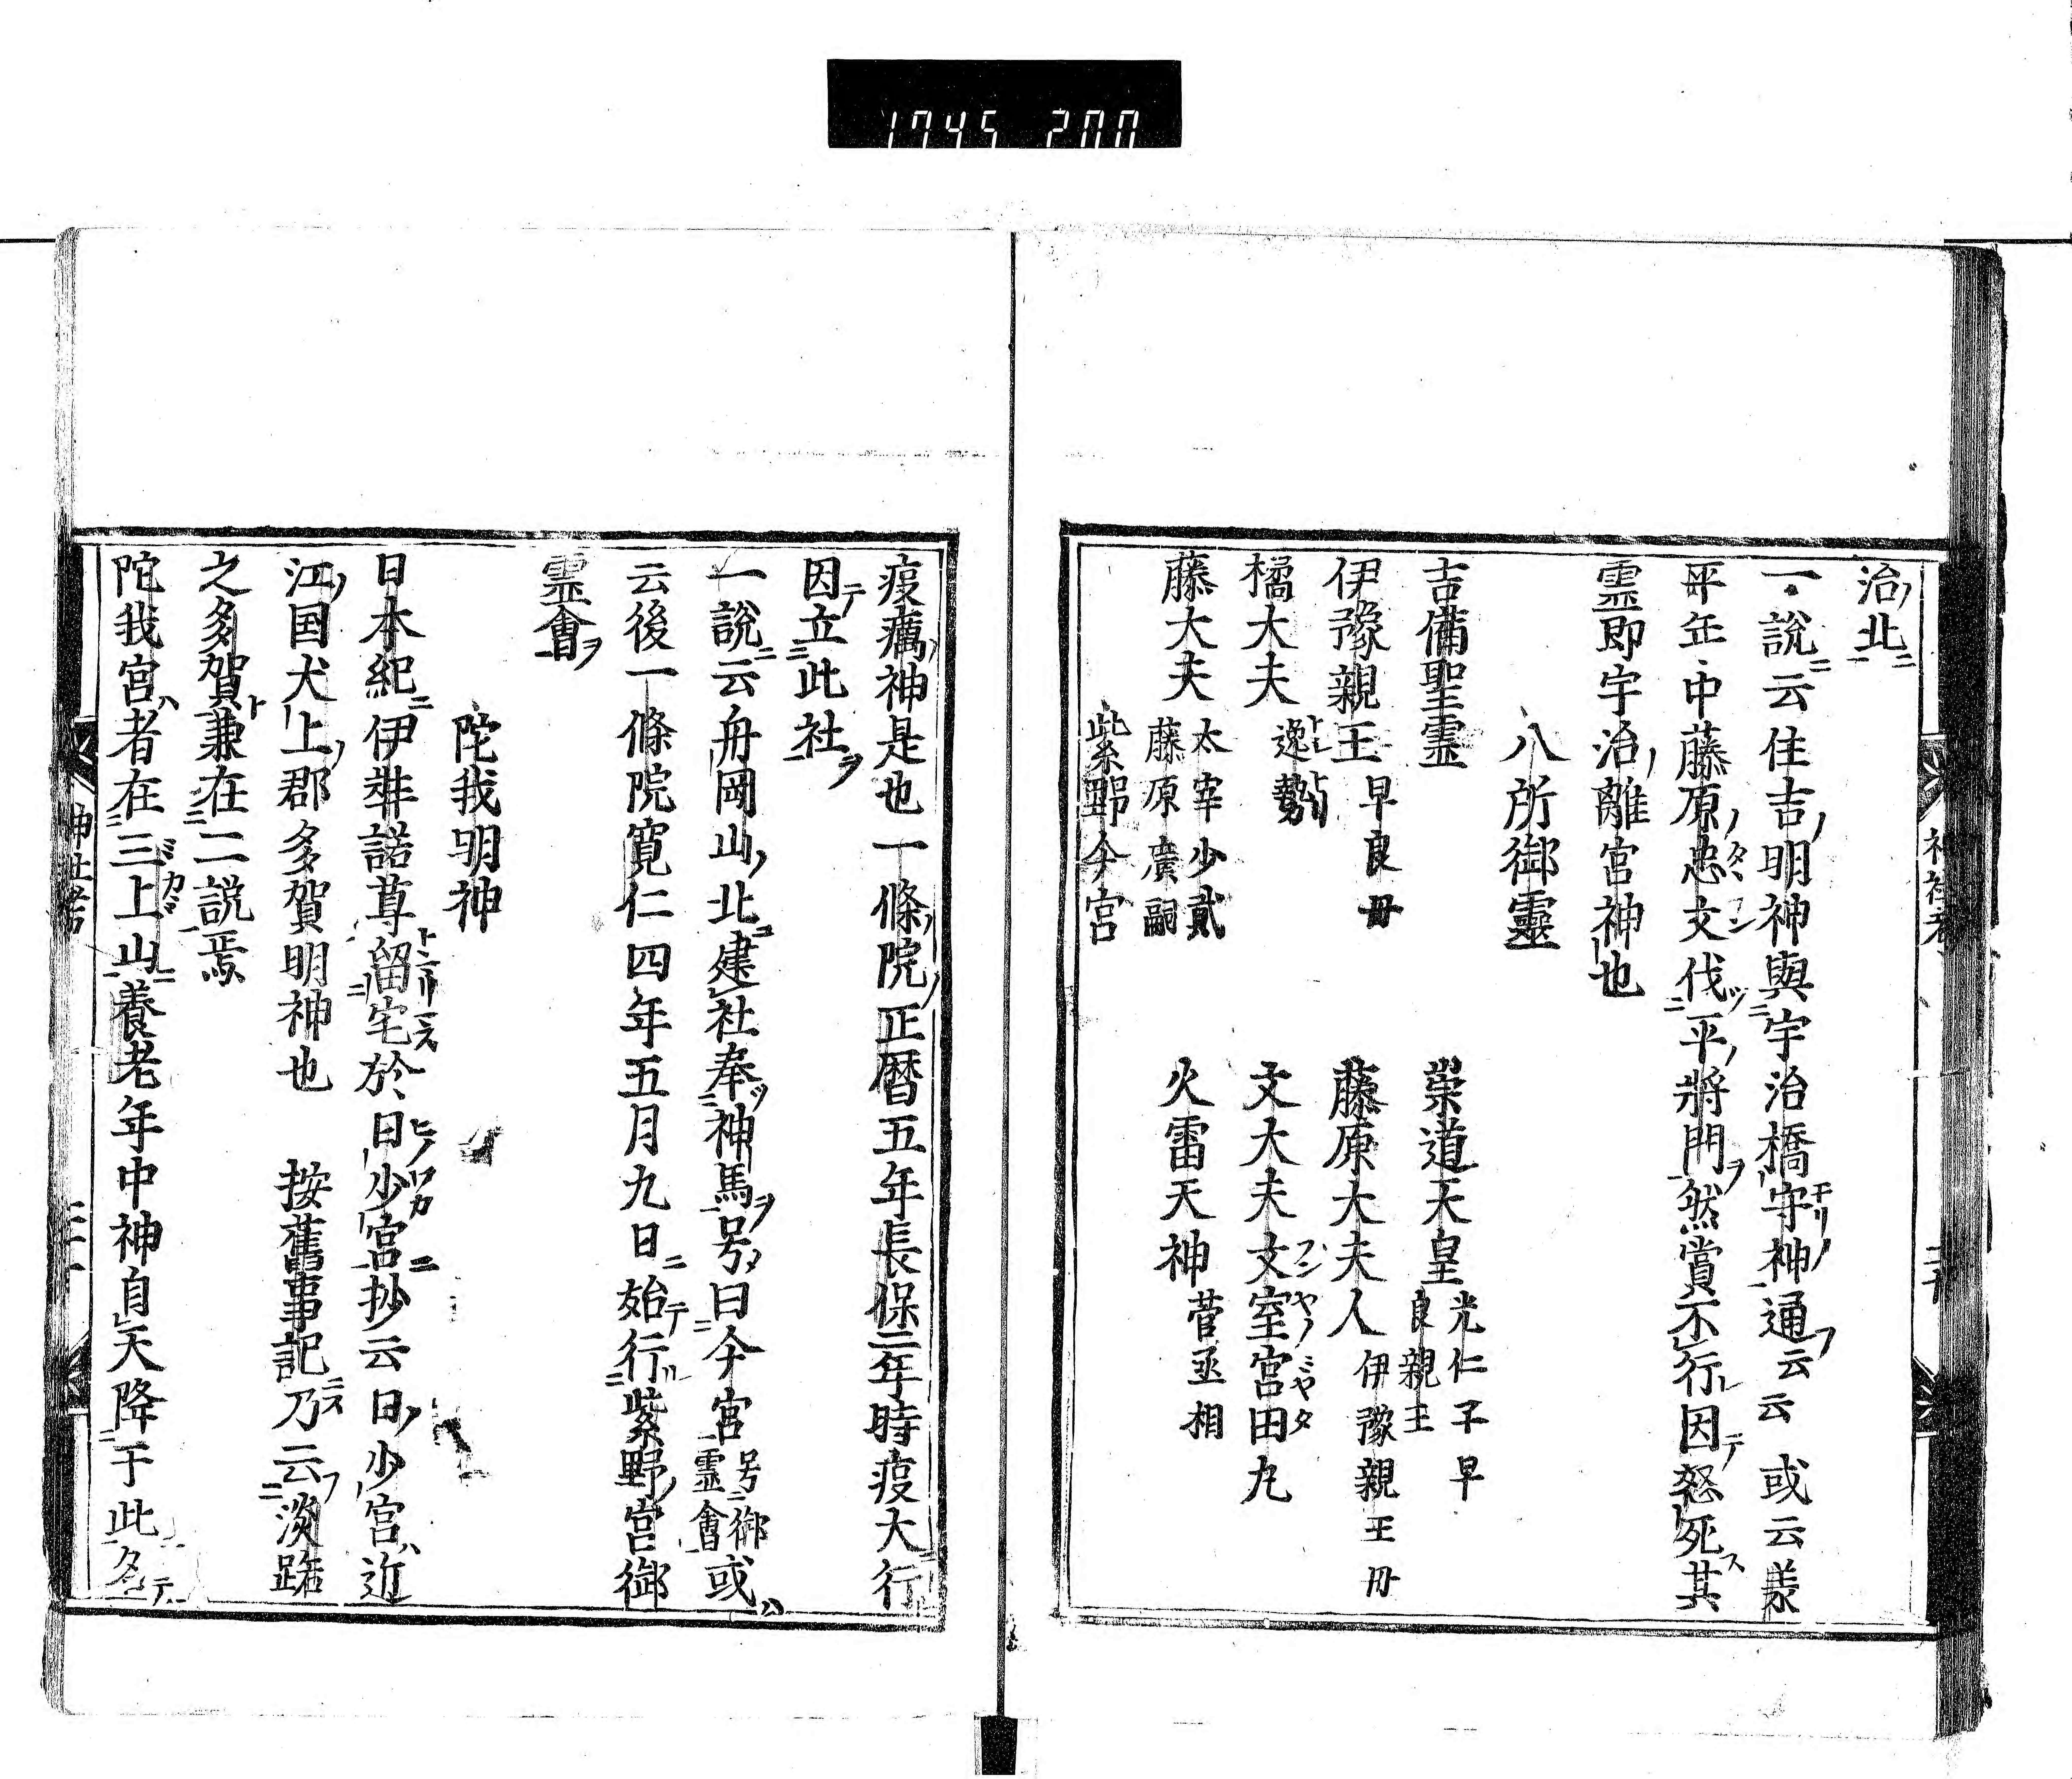 1745 200
治北
一説云住吉明神與宇治橋守神通云云 或云羕
平年中藤原忠文伐平將門然賞不行因怒死其
霊即宇治離宮神也
八所御靈
吉備聖霊 崇道天皇 光仁子早良親王
伊豫親王 早良毋 藤原大夫人 伊豫親王毋
橘大夫 逸勢 文大夫 文室宮田丸
藤大夫 太宰少貳藤原廣嗣 火雷天神 菅丞相
紫野今宮
疫癘神是也一條院正暦五年長保三年時疫大行
因立此社
一說云舟岡山北建社奉神馬号曰今宮 号御霊會 或
云後一條院寛仁四年五月九日始行紫野宮御
霊會
陀我明神
日本紀伊弉諾尊留宅於日少宮抄云日少宮近
江国犬上郡多賀明神也 按舊事記乃云淡路
之多賀兼在二説焉
陀我宮者在三上山養老年中神自天降于此